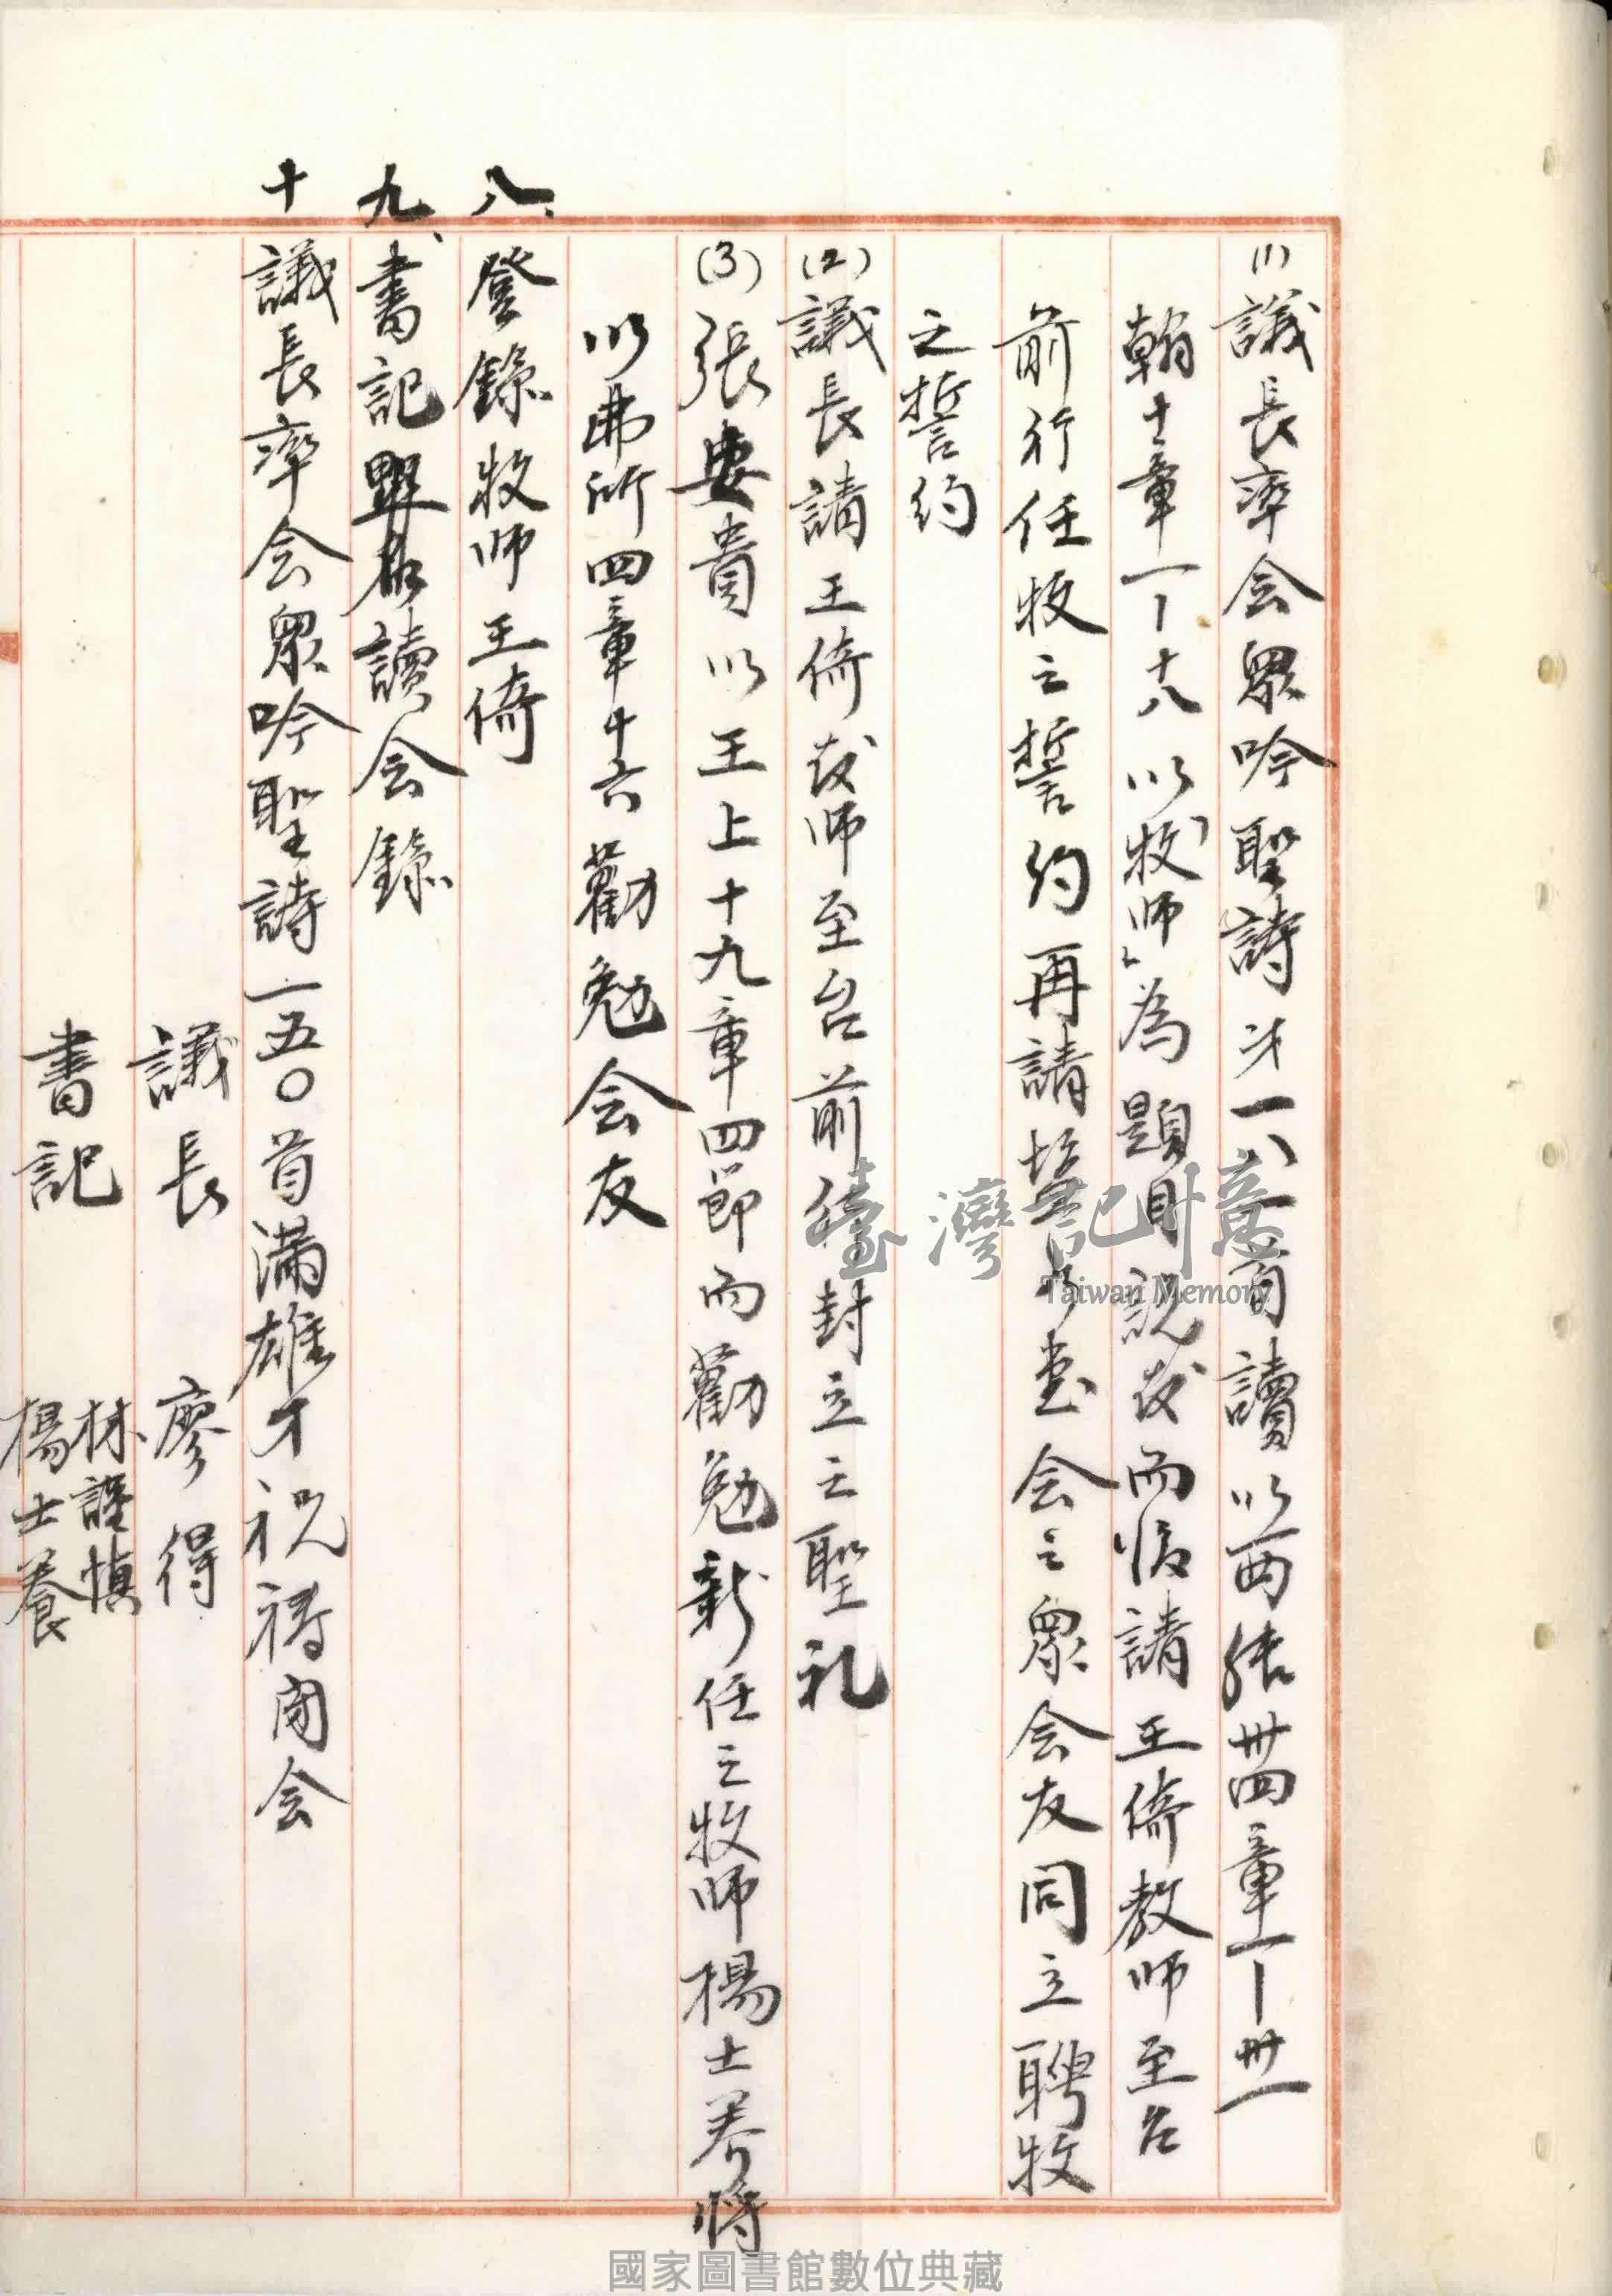 (1)議長率会眾吟聖詩 一八一首讀以西結卅四章一-卅一
翰十章一-十八以「牧師」為題目說教而后請王倚教師至台
前行任牧之誓約再請 堂会之眾会友同立聘牧
之誓約
(2)議長請王倚教師至台前 封立之聖礼
(3)張 貴以王上十九章四節而勸勉新任之牧師楊士养將
以弗所四章十六勸勉会友
八、登錄牧師王倚
九、書記點名讀会錄
十 議長率会眾吟聖詩一五〇首滿雄才祝禱闭会
議長 廖得
書記 林謹慎
楊士養
臺灣記憶
Taiwan Memory
國家圖書館數位典藏